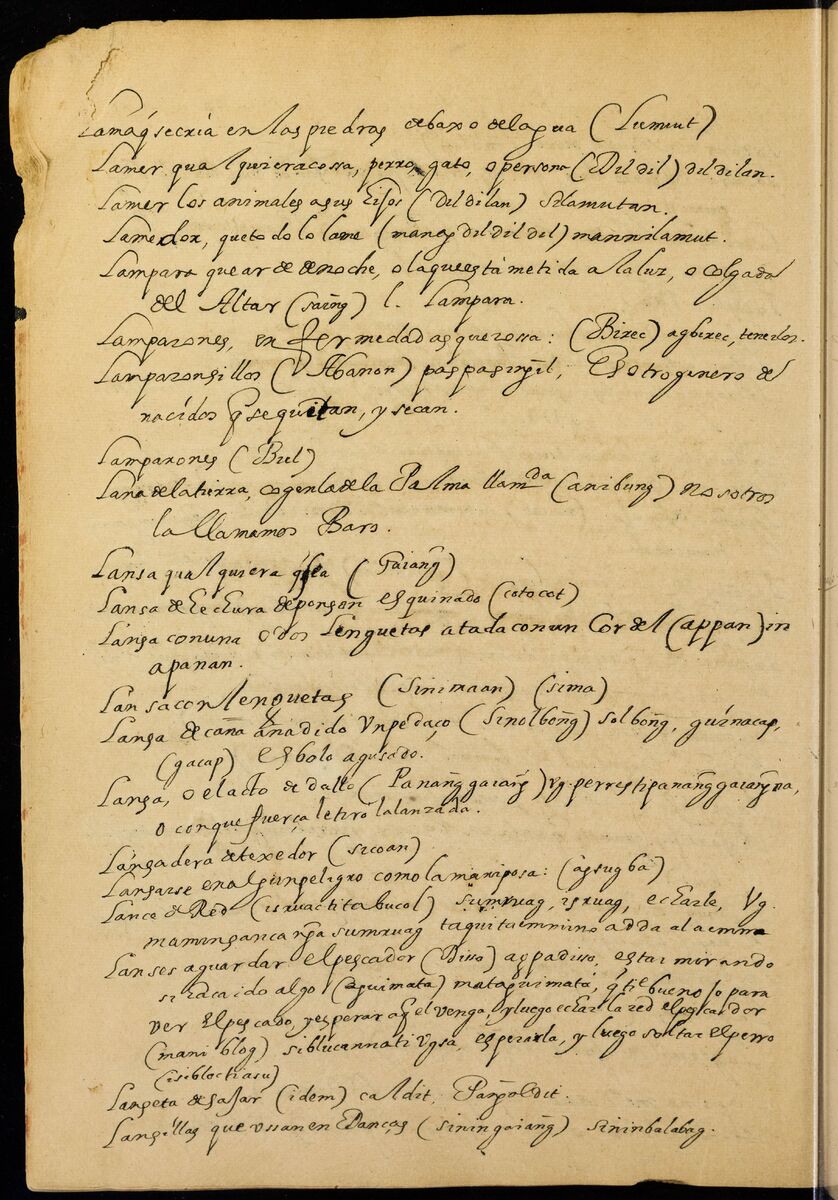 Lama q̃ se cria en las piedras debaxo del agua (Lumut)
Lamer qualquiera cossa, perro, gato, o persona (Dildil) dildilan.
Lamer los animales a sus hijos (Dildilan) silamutan.
Lamedor, que todo lo lame (manĝ dildildil) mannilamut.
Lampara que arde de noche, o la que está metida a la luz, o colgada
del Altar (saing̃) l. Lampara.
Lamparones, enfermedad asquerossa: (Birec) agbirec, tenerlos.
Lamparonsillos (Abanon) paspasing̃il, Es otro genero de
nacidos q̃ se quitan, y secan.
Lamparones (Biel)
Lana de la tierra, cogenla de la Palma llamda (anibung) nosotros
la llamamos Baro.
Lansa qualquiera q̃ sea (Gaiang̃)
Lansa de hechura de ponson esquinado (cotocot)
Lança con una o dos Lenguetas atada con un Cordel (appan) in
apanan.
Lansa con lenguetas (Sinimaan) (sima)
Lança de caña añadido vn pedaço (Sinolbong̃) solbong̃, guinacap,
(gacap) es bolo agusado.
Lança, o el acto de dallo (Panang̃gaiang̃) vg. perres ti panang̃gaiang̃na,
o con que fuerça le tiro la lanzada.
Lançadera de texedor (sicoan)
Lançarse en algun peligro como la mariposa: (agsugba)
Lance de Red (isruac ti tabucol) sumruag, isruag, echarle, Vg.
sumruag
Lanses aguardar el pescador (Disso) agpadisso, estar mirando
si ha caido algo (aguimata) mataguimata, q̃ tie bueno lo para
ver el pescado, y esperar a q̃ el venga, y luego echar la red el pescador
(mani blog) siblucannati vgsa, esperarla, y luego soltar el perro
(isibloc ti asu)
Lanseta de sajar (idem) caldit, Pang̃oldit.
Lansillas que vssan en Danças (siningaiang̃) sininbalabag.